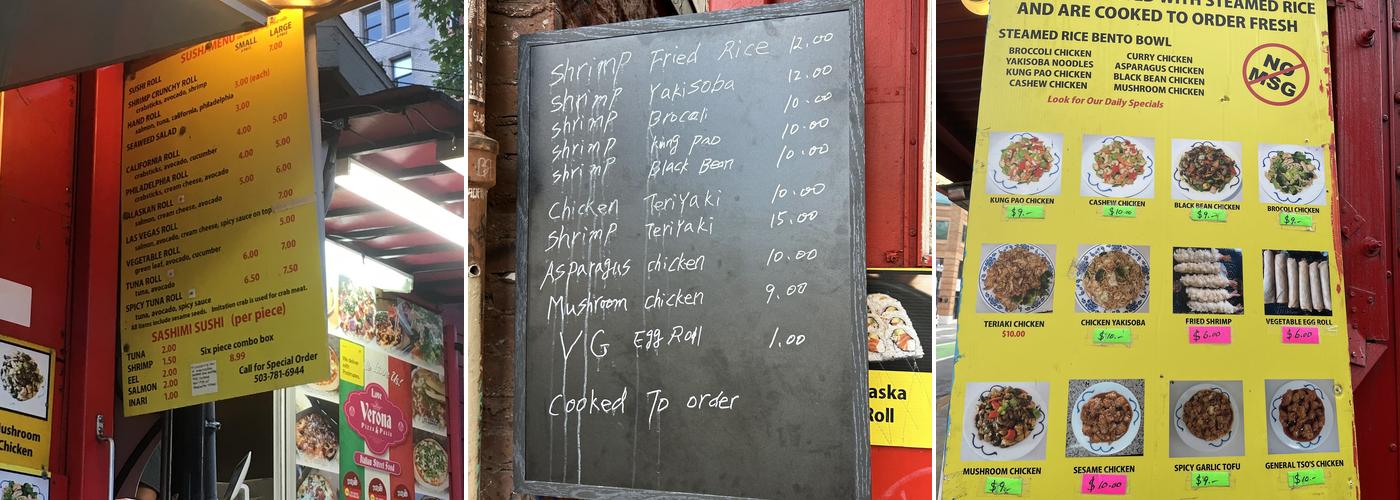 SUSHI MENU
SMALL LARGE
7.00
SUSHI ROLL
SHRIMP CRUNCHY ROLL 3.00 (each)
crabsticks, avocado, shrimp
HAND ROLL 3.00
salmon, tuna, california, philadelphia
SEAWEED SALAD 4.00 5.00
CALIFORNIA ROLL
crabsticks, avocado, cucumber 4.00 5.00
PHILADELPHIA ROLL
crabsticks, cream cheese, avocado 5.00 6.00
ALASKAN ROLL
salmon, cream cheese, avocado 2.00
LAS VEGAS ROLL 5.00
salmon, avocado, cream cheese, spicy sauce on top
VEGETABLE ROLL 6.00 7.00
green leaf, avocado, cucumber
TUNA ROLL 6.50 7.50
tuna, avocado
SPICY TUNA ROLL
tuna, avocado, spicy sauce
All items include sesame seeds. Imitation crab is used for crab meat.
SASHIMI SUSHI (per piece)
TUNA 2.00
SHRIMP 1.50
EEL 2.00
SALMON 2.00
INARI 1.00
Six piece combo box
8.99
Call for Special Order
503-781-6944
Mushroom
Chicken
Love
Verona
PIZZA & PASTA
Italian Street Food
Shrimp Fried Rice 12.00
Shrimp Yakisoba 12.00
Shrimp Brocali 10.00
Shrimp Kung Pao 10.00
Shrimp Black Bean 10.00
Chicken Teriyaki 10.00
Shrimp Teriyaki 15.00
Asparagus chicken 10.00
Mushroom chicken 9.00
VG Egg Roll 1.00
Cooked To order
aska
Roll
WITH STEAMED RICE
AND ARE COOKED TO ORDER FRESH
STEAMED RICE BENTO BOWL
BROCCOLI CHICKEN CURRY CHICKEN
YAKISOBA NOODLES ASPARAGUS CHICKEN
KUNG PAO CHICKEN BLACK BEAN CHICKEN
CASHEW CHICKEN MUSHROOM CHICKEN
Look for Our Daily Specials
NO
MSG
KUNG PAO CHICKEN CASHEW CHICKEN BLACK BEAN CHICKEN BROCOLI CHICKEN
$9.- $10.00 $9.- $9.-
TERIAKI CHICKEN CHICKEN YAKISOBA FRIED SHRIMP VEGETABLE EGG ROLL
$10.00 $10.- $6.00 $6.00
MUSHROOM CHICKEN SESAME CHICKEN SPICY GARLIC TOFU GENERAL TSO'S CHICKEN
$9.- $10.00 $9.- $10.-